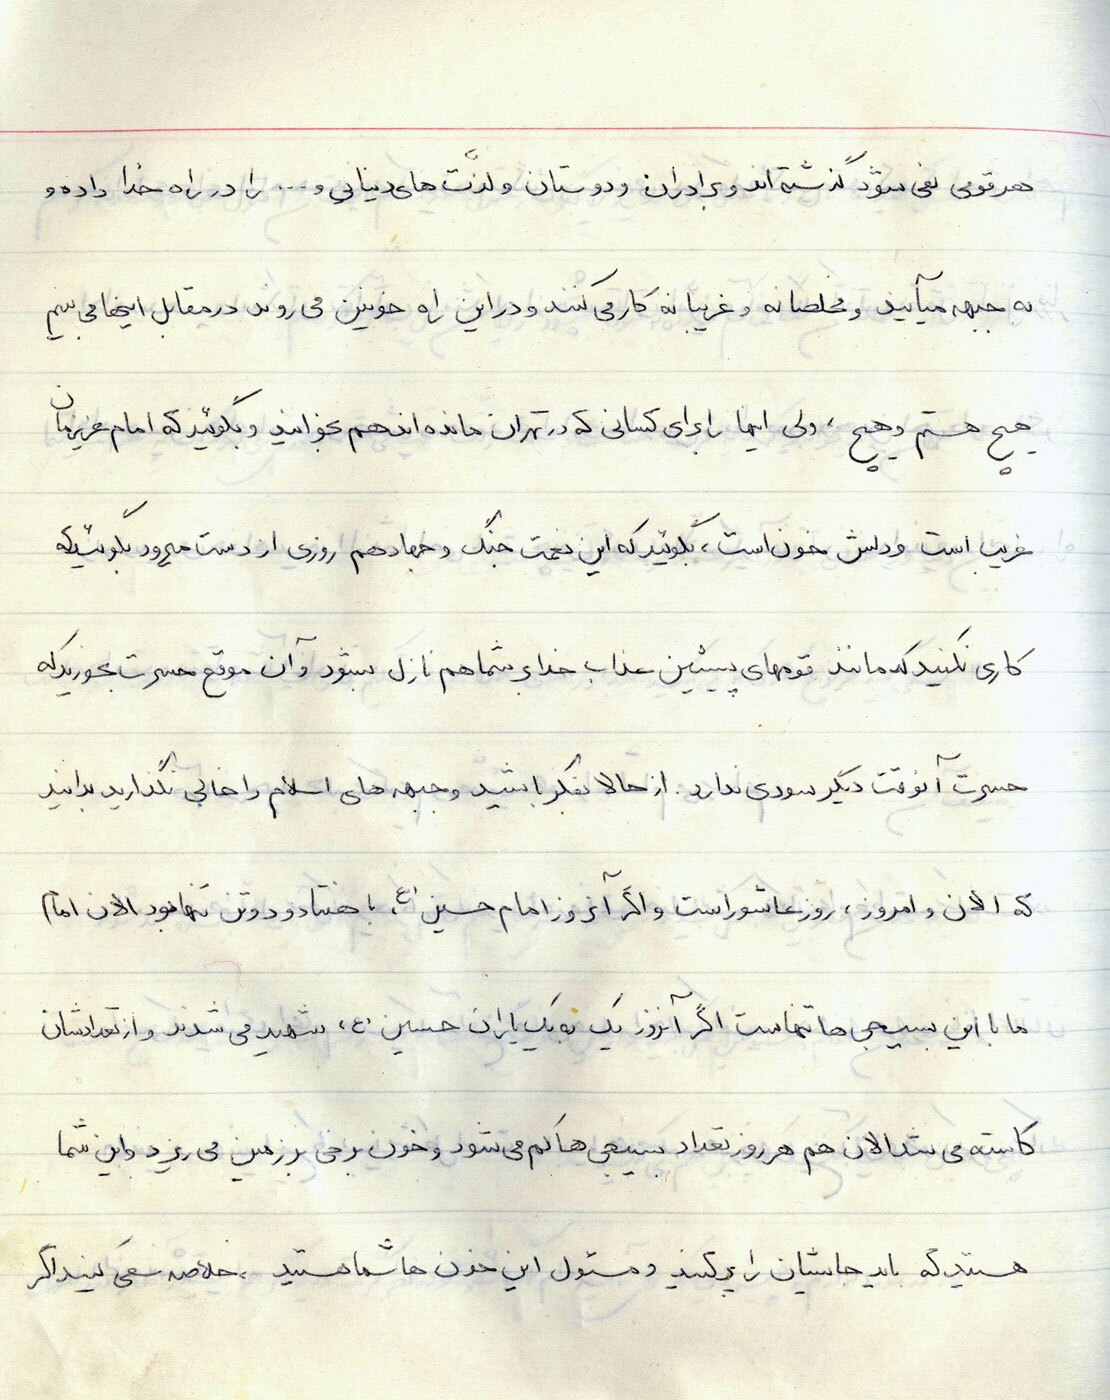 هر قومی نمی شود گذشته اند و برادران و دوستان و لذّت های دنیایی و... را در راه خدا داده و
به جبهه میآیند و مخلصانه و غریبانه کار می کنند و در این راه خونین می روند در مقابل اینها می بینم
هیچ هستم و هیچ ، ولی اینها را برای کسانی که در تهران مانده اند هم بخوانید و بگوئید که امام عزیزمان
غریب است و دلش خون است ، بگوئید که این نعمت جنگ و جهاد هم روزی از دست میرود بگوئید که
کاری نکنید که مانند قومهای پیشین عذاب خدا بر شما هم نازل بشود و آن موقع حسرت بخورید که
حسرت آنوقت دیگر سودی ندارد . از حالا بفکر باشید و جبهه های اسلام را خالی نگذارید بدانید
که الان و امروز ، روز عاشوراست و اگر آنروز امام حسین (ع) با هفتاد و دو تن تنها بود الان امام
ما با این بسیجی ها تنهاست اگر آنروز یک به یک یاران حسین (ع) شهید می شدند و از تعدادشان
کاسته می شد الان هم هر روز تعداد بسیجی ها کم می شود و خون برخی بر زمین می ریزد و این شما
هستید که باید جایشان را پر کنید و مسئول این خون ها شما هستید ، خلاصه سعی کنید اگر